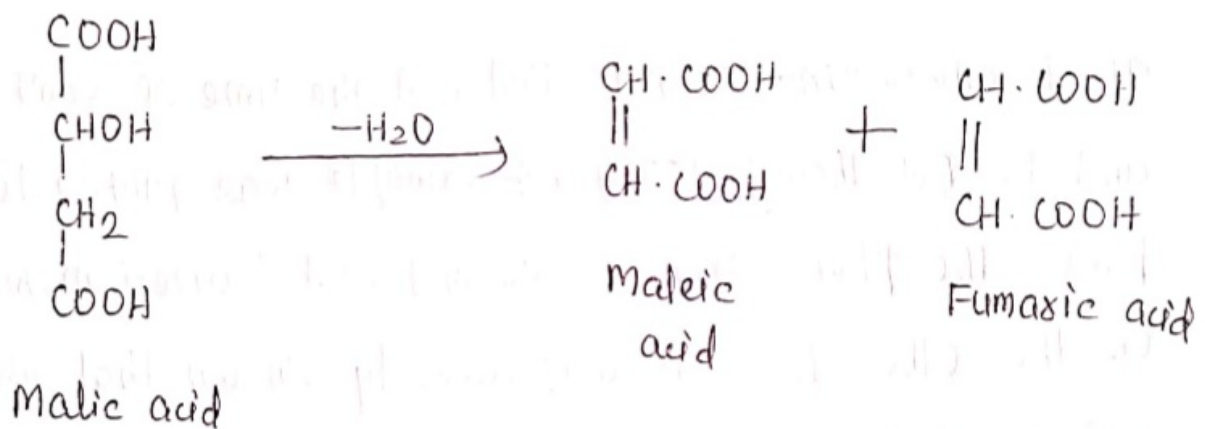 COOH
|
CHOH
|
CH2
|
COOH
Malic acid
-H2O
CH·COOH
||
CH·COOH
Maleic
acid
+
CH·COOH
||
CH·COOH
Fumaric acid